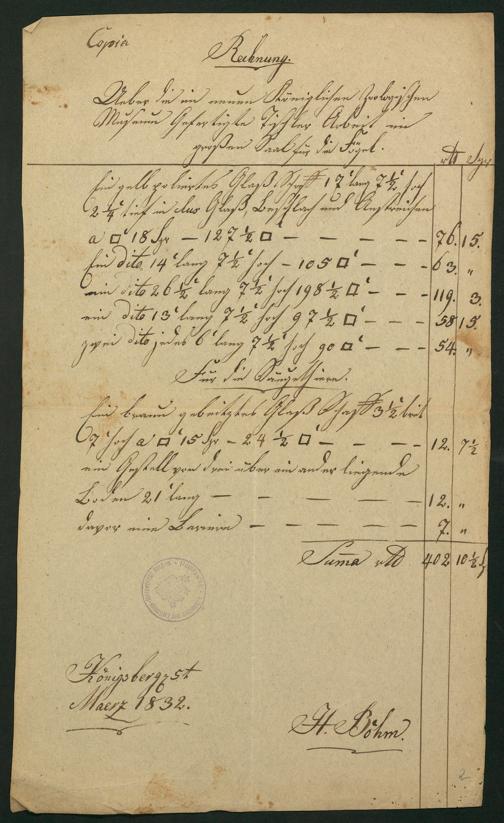 Copia
Rechnung.
Ueber die im neuen Königlichen Zoologischen
Museum Gefertigte Tischler Arbeit im
großen Saal für die Fögel.
rtl Sgr
Ein gelb polirtes Glaß Schaff 17' lang 7½' hoch
2¼' tief in clus Glaß, Beschlach und Anstreichen
a □' 18 Sgr — 127½ □' — — — — 76. 15.
Ein dito 14' lang 7½' hoch — 105 □' — — 63. "
ein dito 26½' lang 7½' hoch 198½ □' — — 119. 3.
ein dito 13' lang 7½' hoch 97½ □' — — 58 15
zwei dito jedes 6' lang 7½' hoch 90 □' — — 54. "
Für die Säugethiere.
Ein braun gebeitztes Glaß Schaff 3½' breit
7' hoch a □' 15 Sgr — 24½ □' — — — 12. 7½
ein Gestell von drei über ein ander liegende
Boden 21' lang — — — — — 12. "
davor eine Bariere — — — — — 7. "
Summa rtl 402 10½
Königsberg
Maerz 1832.
H. Böhm.
2